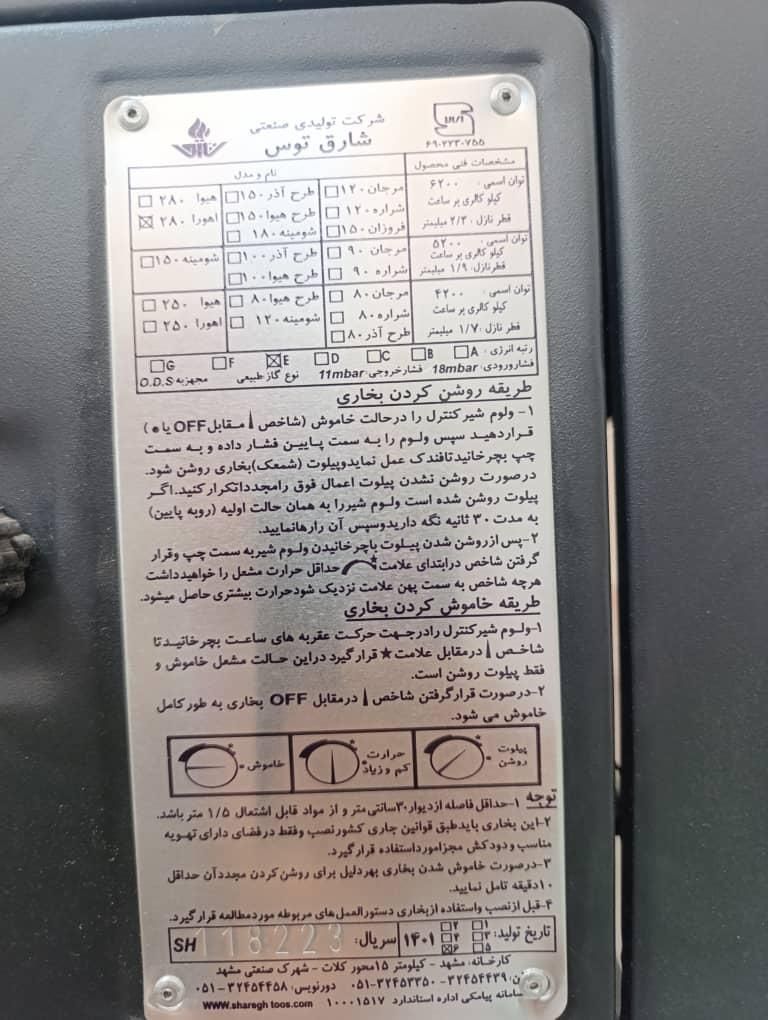 شرکت تولیدی صنعتی
شارق توس
۶۹۰۲۲۳۰۷۵۵
مشخصات فنی محصول
نام و مدل
توان اسمی : ۶۲۰۰
کیلو کالری بر ساعت
قطر نازل : ۲/۳ میلیمتر
مرجان ۱۲۰
شراره ۱۲۰
فروزان ۱۵۰
طرح آذر ۱۵۰
طرح هیوا ۱۵۰
شومینه ۱۸۰
هیوا ۲۸۰
اهورا ۲۸۰
توان اسمی : ۵۲۰۰
کیلو کالری بر ساعت
قطر نازل : ۱/۹ میلیمتر
مرجان ۹۰
شراره ۹۰
طرح آذر ۱۰۰
طرح هیوا ۱۰۰
شومینه ۱۵۰
توان اسمی : ۴۲۰۰
کیلو کالری بر ساعت
قطر نازل : ۱/۷ میلیمتر
مرجان ۸۰
شراره ۸۰
طرح آذر ۸۰
طرح هیوا ۸۰
شومینه ۱۲۰
هیوا ۲۵۰
اهورا ۲۵۰
رتبه انرژی : A B C D E F G
فشارورودی: 18mbar فشارخروجی: 11mbar نوع گاز طبیعی مجهزبه O.D.S
طریقه روشن کردن بخاری
۱- ولوم شیر کنترل را درحالت خاموش (شاخص مقابل OFF یا ●)
قراردهید سپس ولوم را به سمت پایین فشار داده و به سمت
چپ بچرخانیدتافندک عمل نمایدوپیلوت (شمعک)بخاری روشن شود.
درصورت روشن نشدن پیلوت اعمال فوق رامجدداتکرارکنید.اگر
پیلوت روشن شده است ولوم شیررا به همان حالت اولیه (روبه پایین)
به مدت ۳۰ ثانیه نگه داریدوسپس آن رارهانمایید.
۲-پس ازروشن شدن پیلوت باچرخانیدن ولوم شیربه سمت چپ وقرار
گرفتن شاخص درابتدای علامت حداقل حرارت مشعل را خواهیدداشت
هرچه شاخص به سمت پهن علامت نزدیک شودحرارت بیشتری حاصل میشود.
طریقه خاموش کردن بخاری
۱-ولوم شیرکنترل رادرجهت حرکت عقربه های ساعت بچرخانیدتا
شاخص درمقابل علامت ★ قرارگیرد دراین حالت مشعل خاموش و
فقط پیلوت روشن است.
۲-درصورت قرارگرفتن شاخص درمقابل OFF بخاری به طورکامل
خاموش می شود.
پیلوت روشن
حرارت کم و زیاد
خاموش
توجه ۱-حداقل فاصله ازدیوار۳۰سانتی متر و از مواد قابل اشتعال ۱/۵ متر باشد.
۲-این بخاری بایدطبق قوانین جاری کشورنصب وفقط درفضای دارای تهویه
مناسب ودودکش مجزامورداستفاده قرارگیرد.
۳-درصورت خاموش شدن بخاری بهردلیل برای روشن کردن مجددآن حداقل
۱۰دقیقه تامل نمایید.
۴-قبل ازنصب واستفاده ازبخاری دستورالعمل های مربوطه موردمطالعه قرارگیرد.
تاریخ تولید: ۱ ۲ ۳ ۴ ۵ ۶ ۱۴۰۱ سریال: SH 118223
کارخانه: مشهد - کیلومتر ۱۵محور کلات - شهرک صنعتی مشهد
۳۲۴۵۴۴۳۹ - ۳۲۴۵۳۳۵۰-۰۵۱ دورنویس: ۳۲۴۵۴۴۵۸-۰۵۱
سامانه پیامکی اداره استاندارد ۱۰۰۰۱۵۱۷ WWW.sharegh toos.com